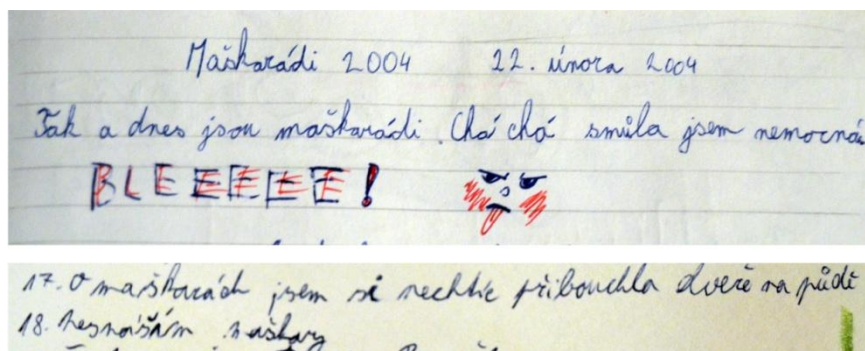 Maškarádi 2004 22. února 2004
Tak a dnes jsou maškarádi. Chá chá smůla jsem nemocná.
BLEEEEEE!
17. O maškarách jsem si nechtíc přibouchla dveře na půdě
18. nesnáším maškary